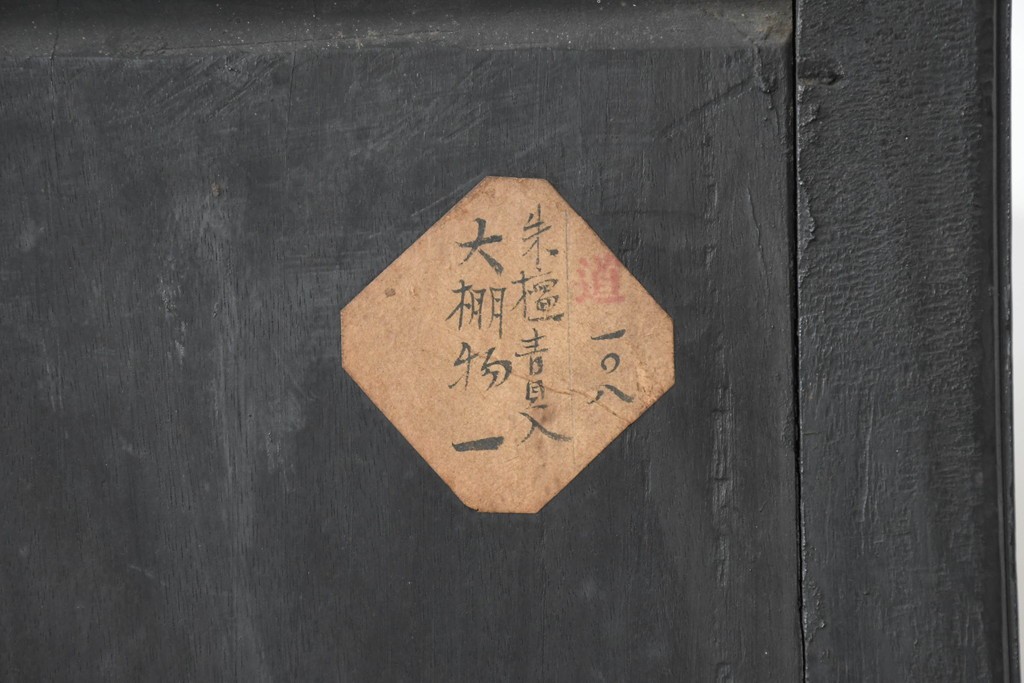 道 一〇八
朱檀青貝入
大棚物 一